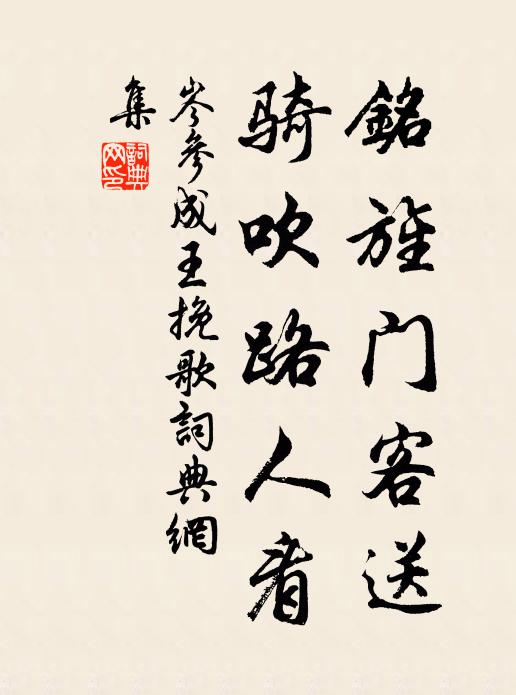 銘旌门客送
騎吹路人看
岑參成王挽歌詞典網
集
詞典
网印